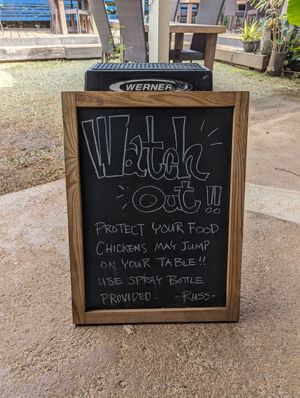 WERNER
Watch
Out!!
PROTECT YOUR FOOD
CHICKENS MAY JUMP
ON YOUR TABLE!!
USE SPRAY BOTTLE
PROVIDED. -RUSS-